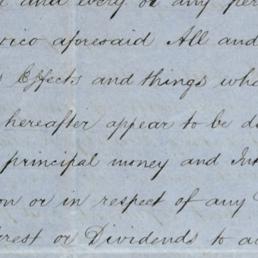 and every or any per
rico aforesaid All and
s Effects and things wha
hereafter appear to be d
principal money and Int
on or in respect of any
erest or Dividends to a